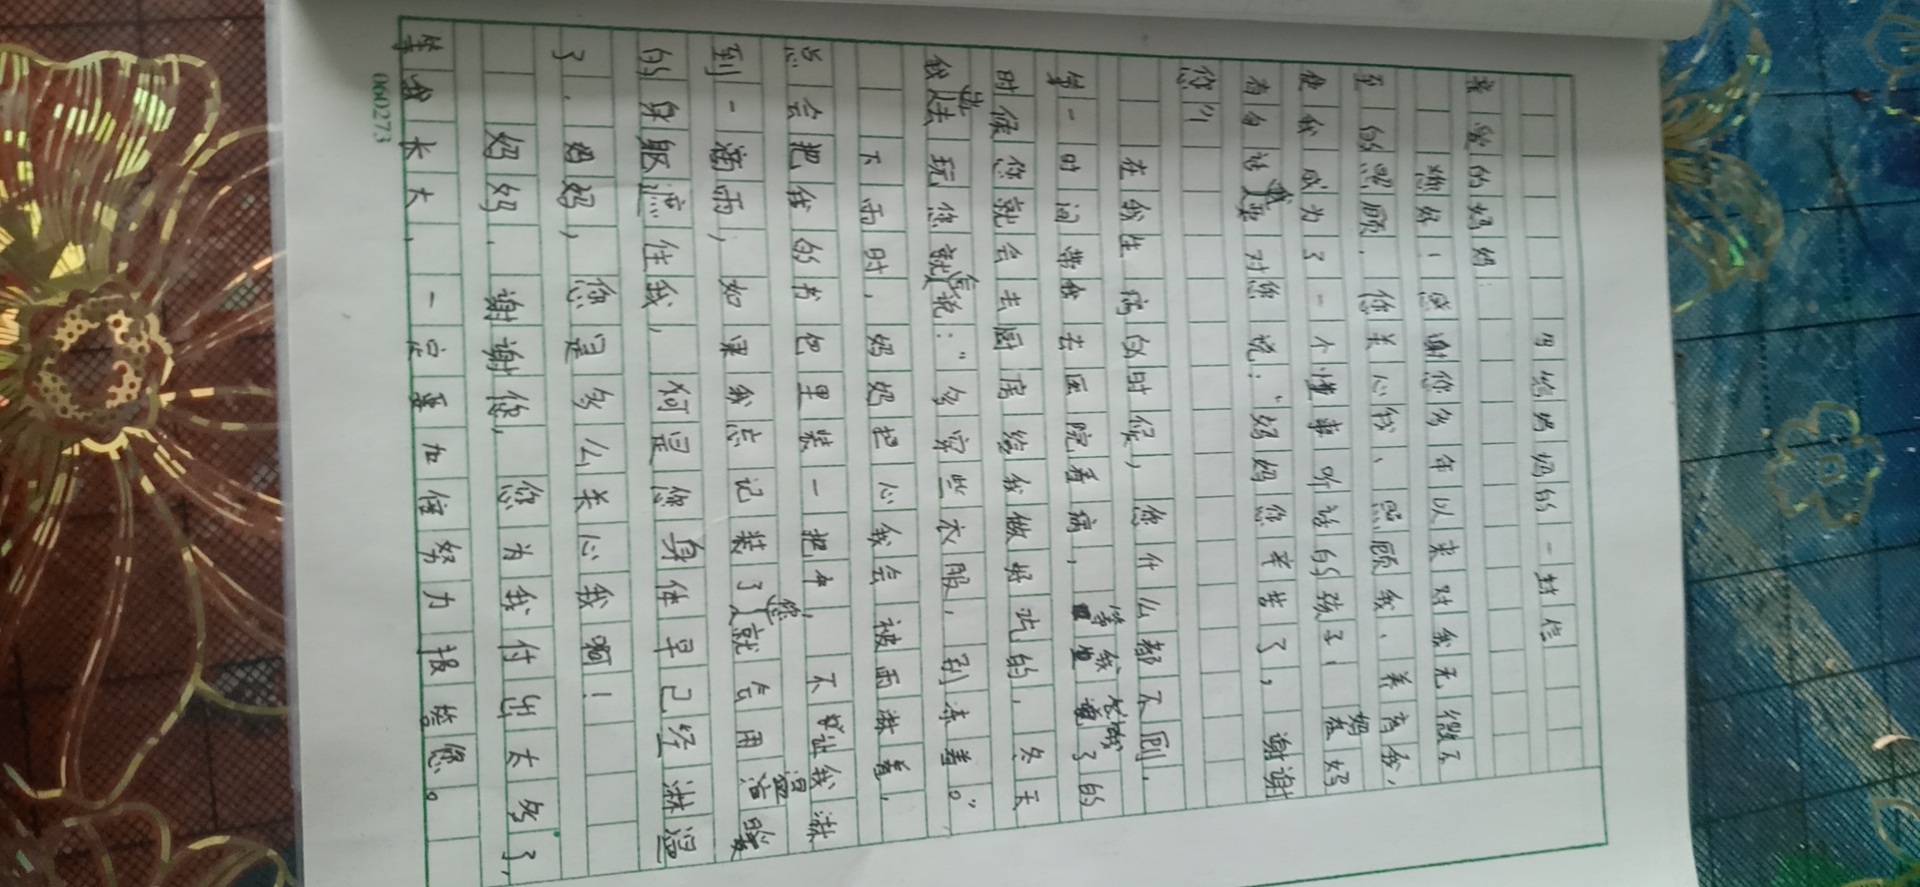 写给妈妈的一封信
亲爱的妈妈:
您好!感谢您多年以来对我无微不
至的照顾.您关心我、照顾我、养育我,
使我成为了一个懂事听话的孩子!妈妈
有句话我要对您说:“妈妈您辛苦了,谢谢
您”
在我生病的时候,您什么都不顾.
第一时间带我去医院看病,等我饿了的
时候您就会去厨房给我做好吃的,冬天
我出去玩您就会说:“多穿些衣服,别冻着。”
下雨时,妈妈担心我会被雨淋着,
总会把我的书包里装一把伞,不让我淋
到一滴雨,如果我忘记装了您就会用温暖
的身躯遮住我,可是您身体早已经淋湿
了.妈妈,您是多么关心我啊!
妈妈.谢谢您,您为我付出太多了,
等我长大,一定要加倍努力报答您。
0602273